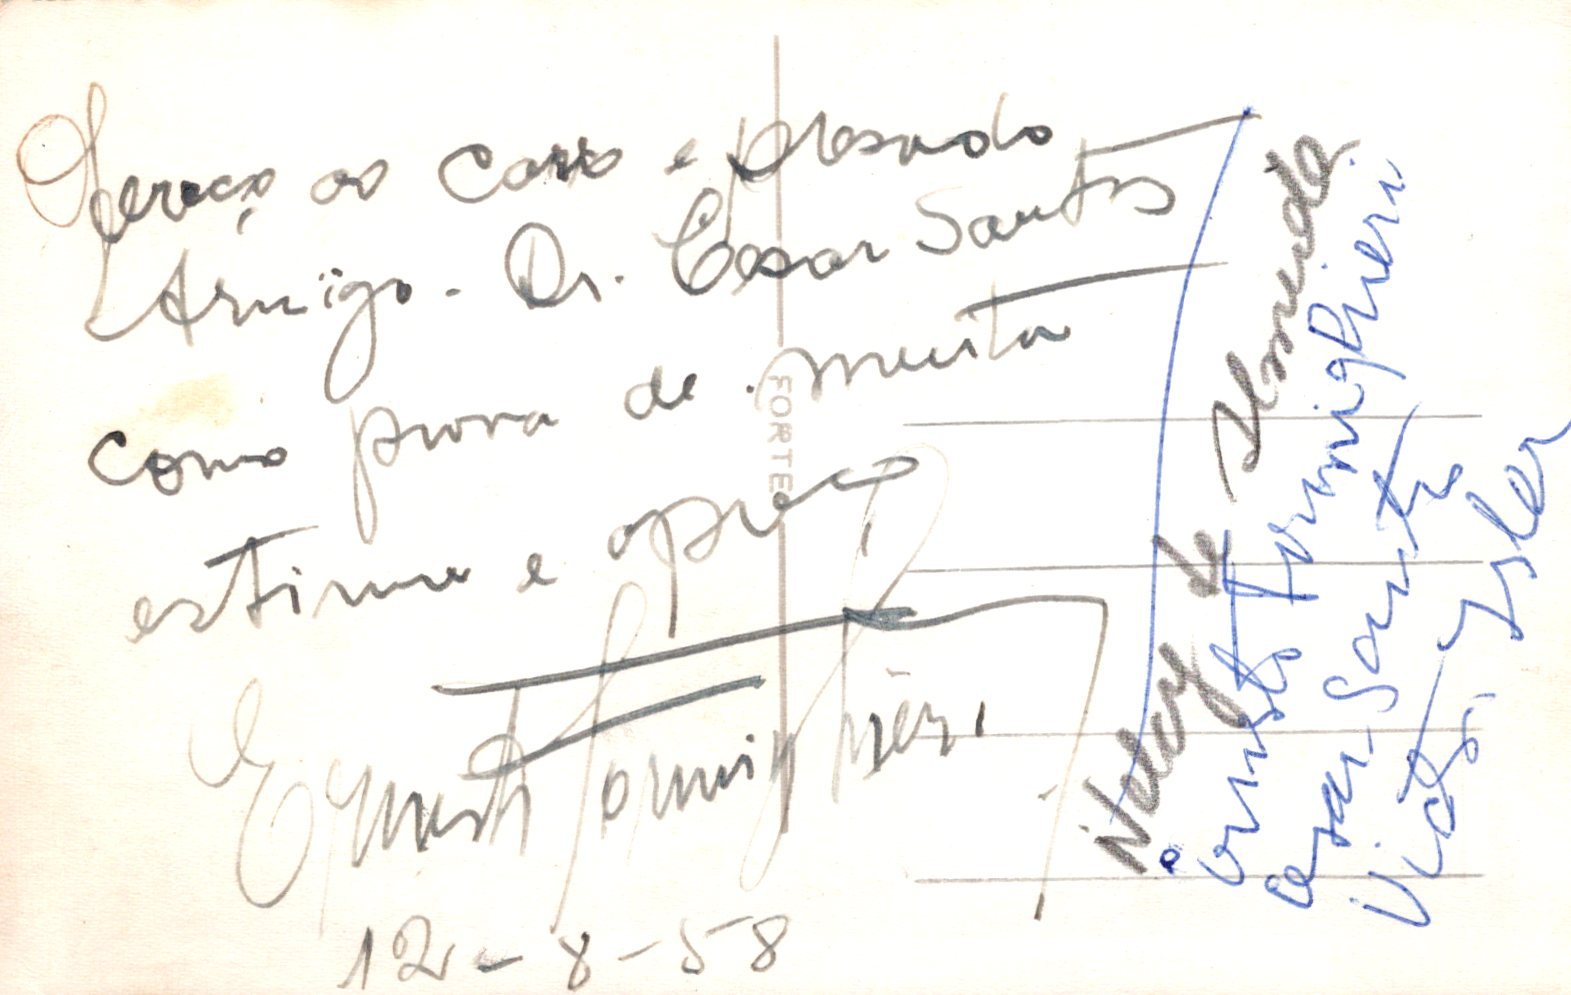 Ofereço ao caro e presado
Amigo. Dr. Cesar Santos
como prova de muita
estima e apreço
Ernesto Formighieri
12-8-58
FORTE
Ndoy de Almeida
Ernesto Formighieri
Cesar Santos
Isler